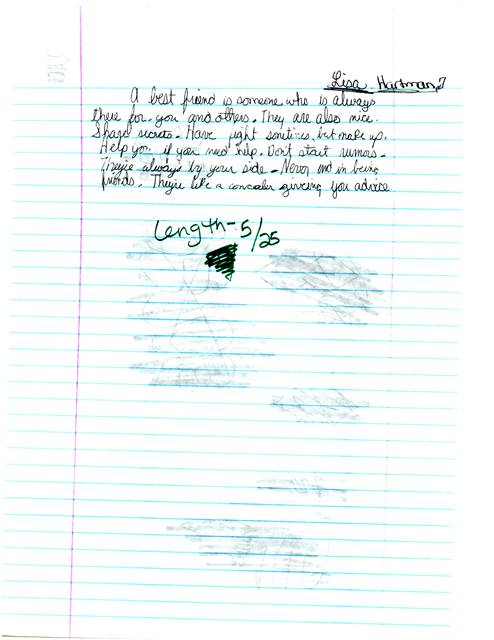 Lisa Hartman, 7
A best friend is someone who is always
there for you and others. They are also nice.
Share secrets. Have fight somtimes, but make up.
Help you if you need help. Don't start rumors.
They're always by your side. Never end in being
friends. They're like a concealer giveing you advice
Length - 5/25